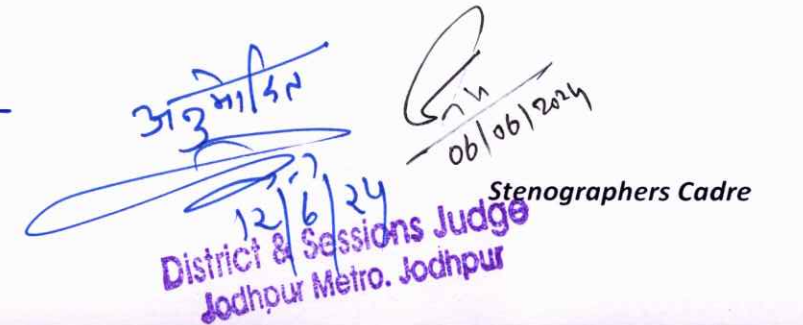 अनुमोदित
06/06/2024
12/6/24
Stenographers Cadre
District & Sessions Judge
Jodhpur Metro. Jodhpur